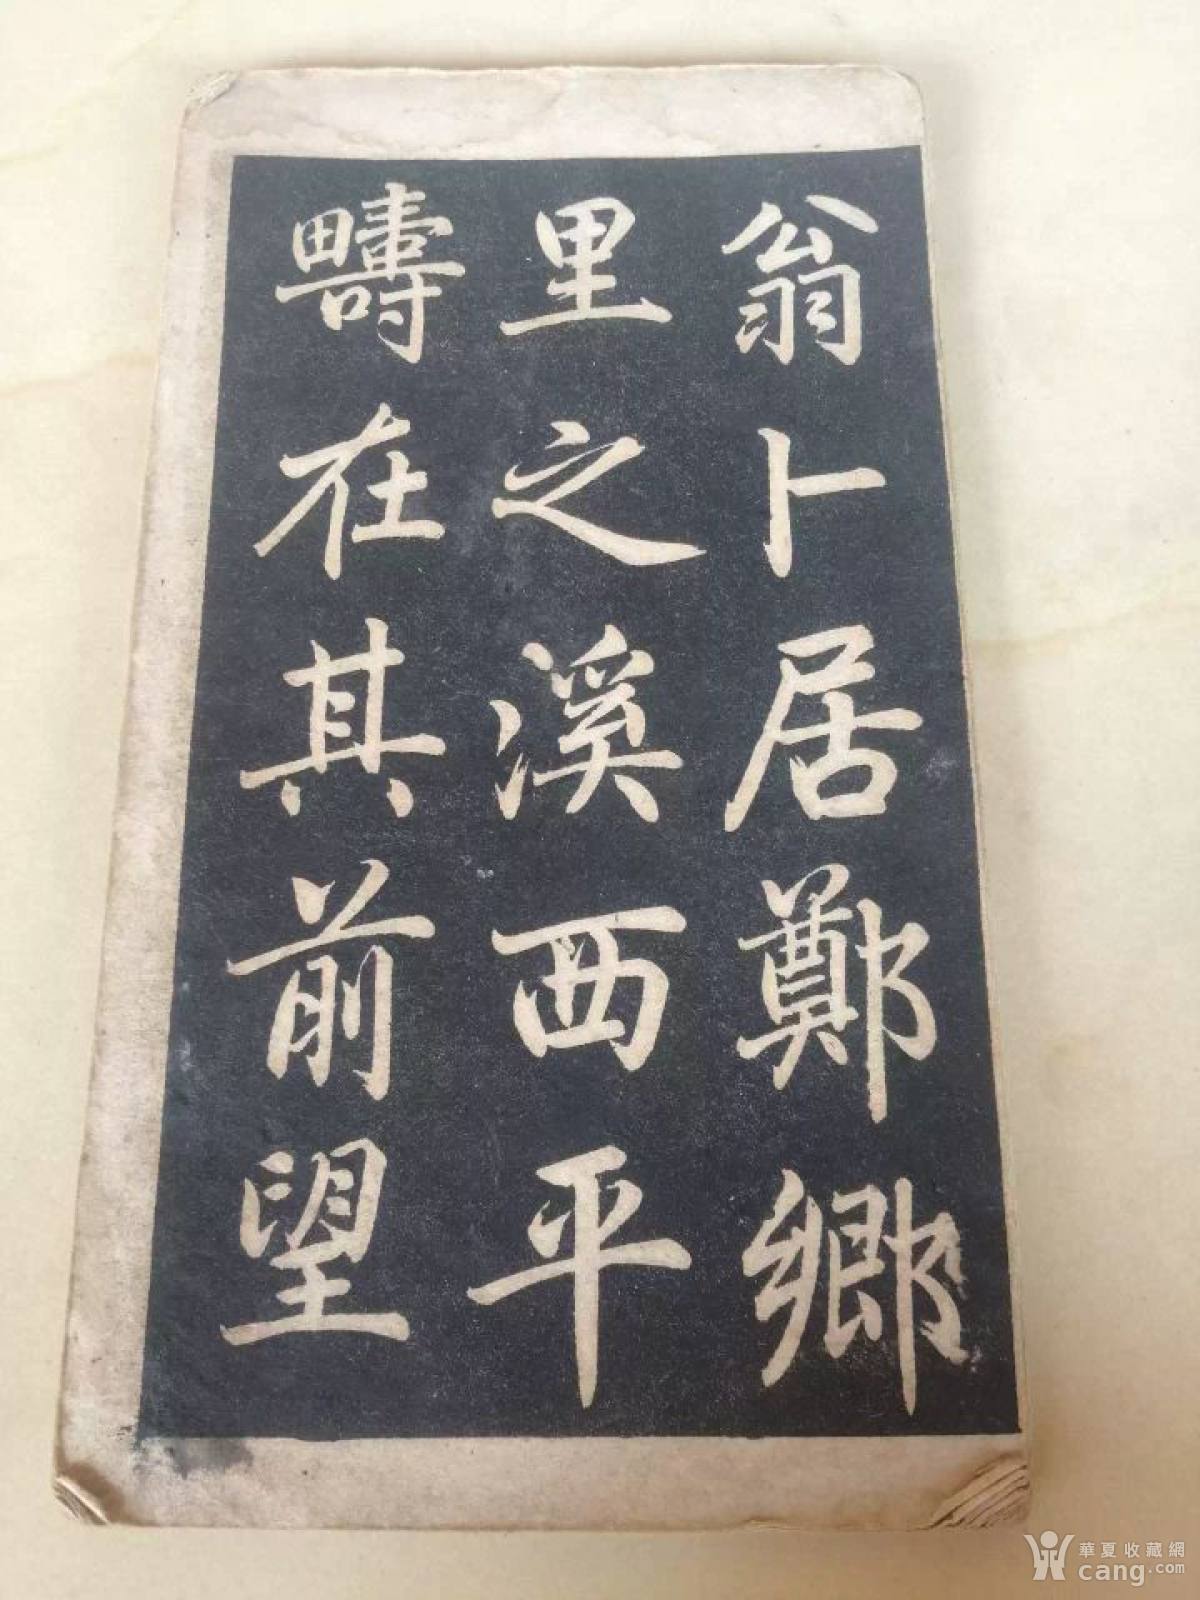 翁卜居鄭鄉
里之溪西平
疇在其前望
華夏收藏網
cang.com